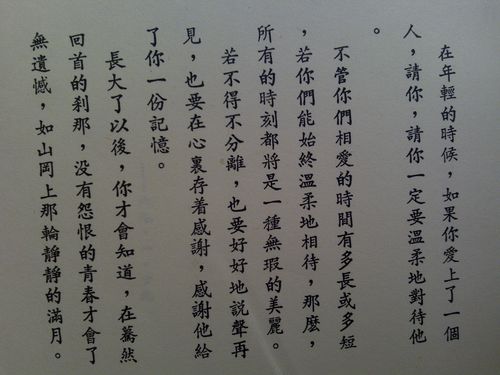 在年輕的時候，如果你愛上了一個
人，請你，請你一定要溫柔地對待他
。
不管你們相愛的時間有多長或多短
，若你們能始終溫柔地相待，那麼，
所有的時刻都將是一種無瑕的美麗。
若不得不分離，也要好好地說聲再
見，也要在心裏存着感謝，感謝他給
了你一份記憶。
長大了以後，你才會知道，在驀然
回首的刹那，没有怨恨的青春才會了
無遺憾，如山岡上那輪靜靜的滿月。